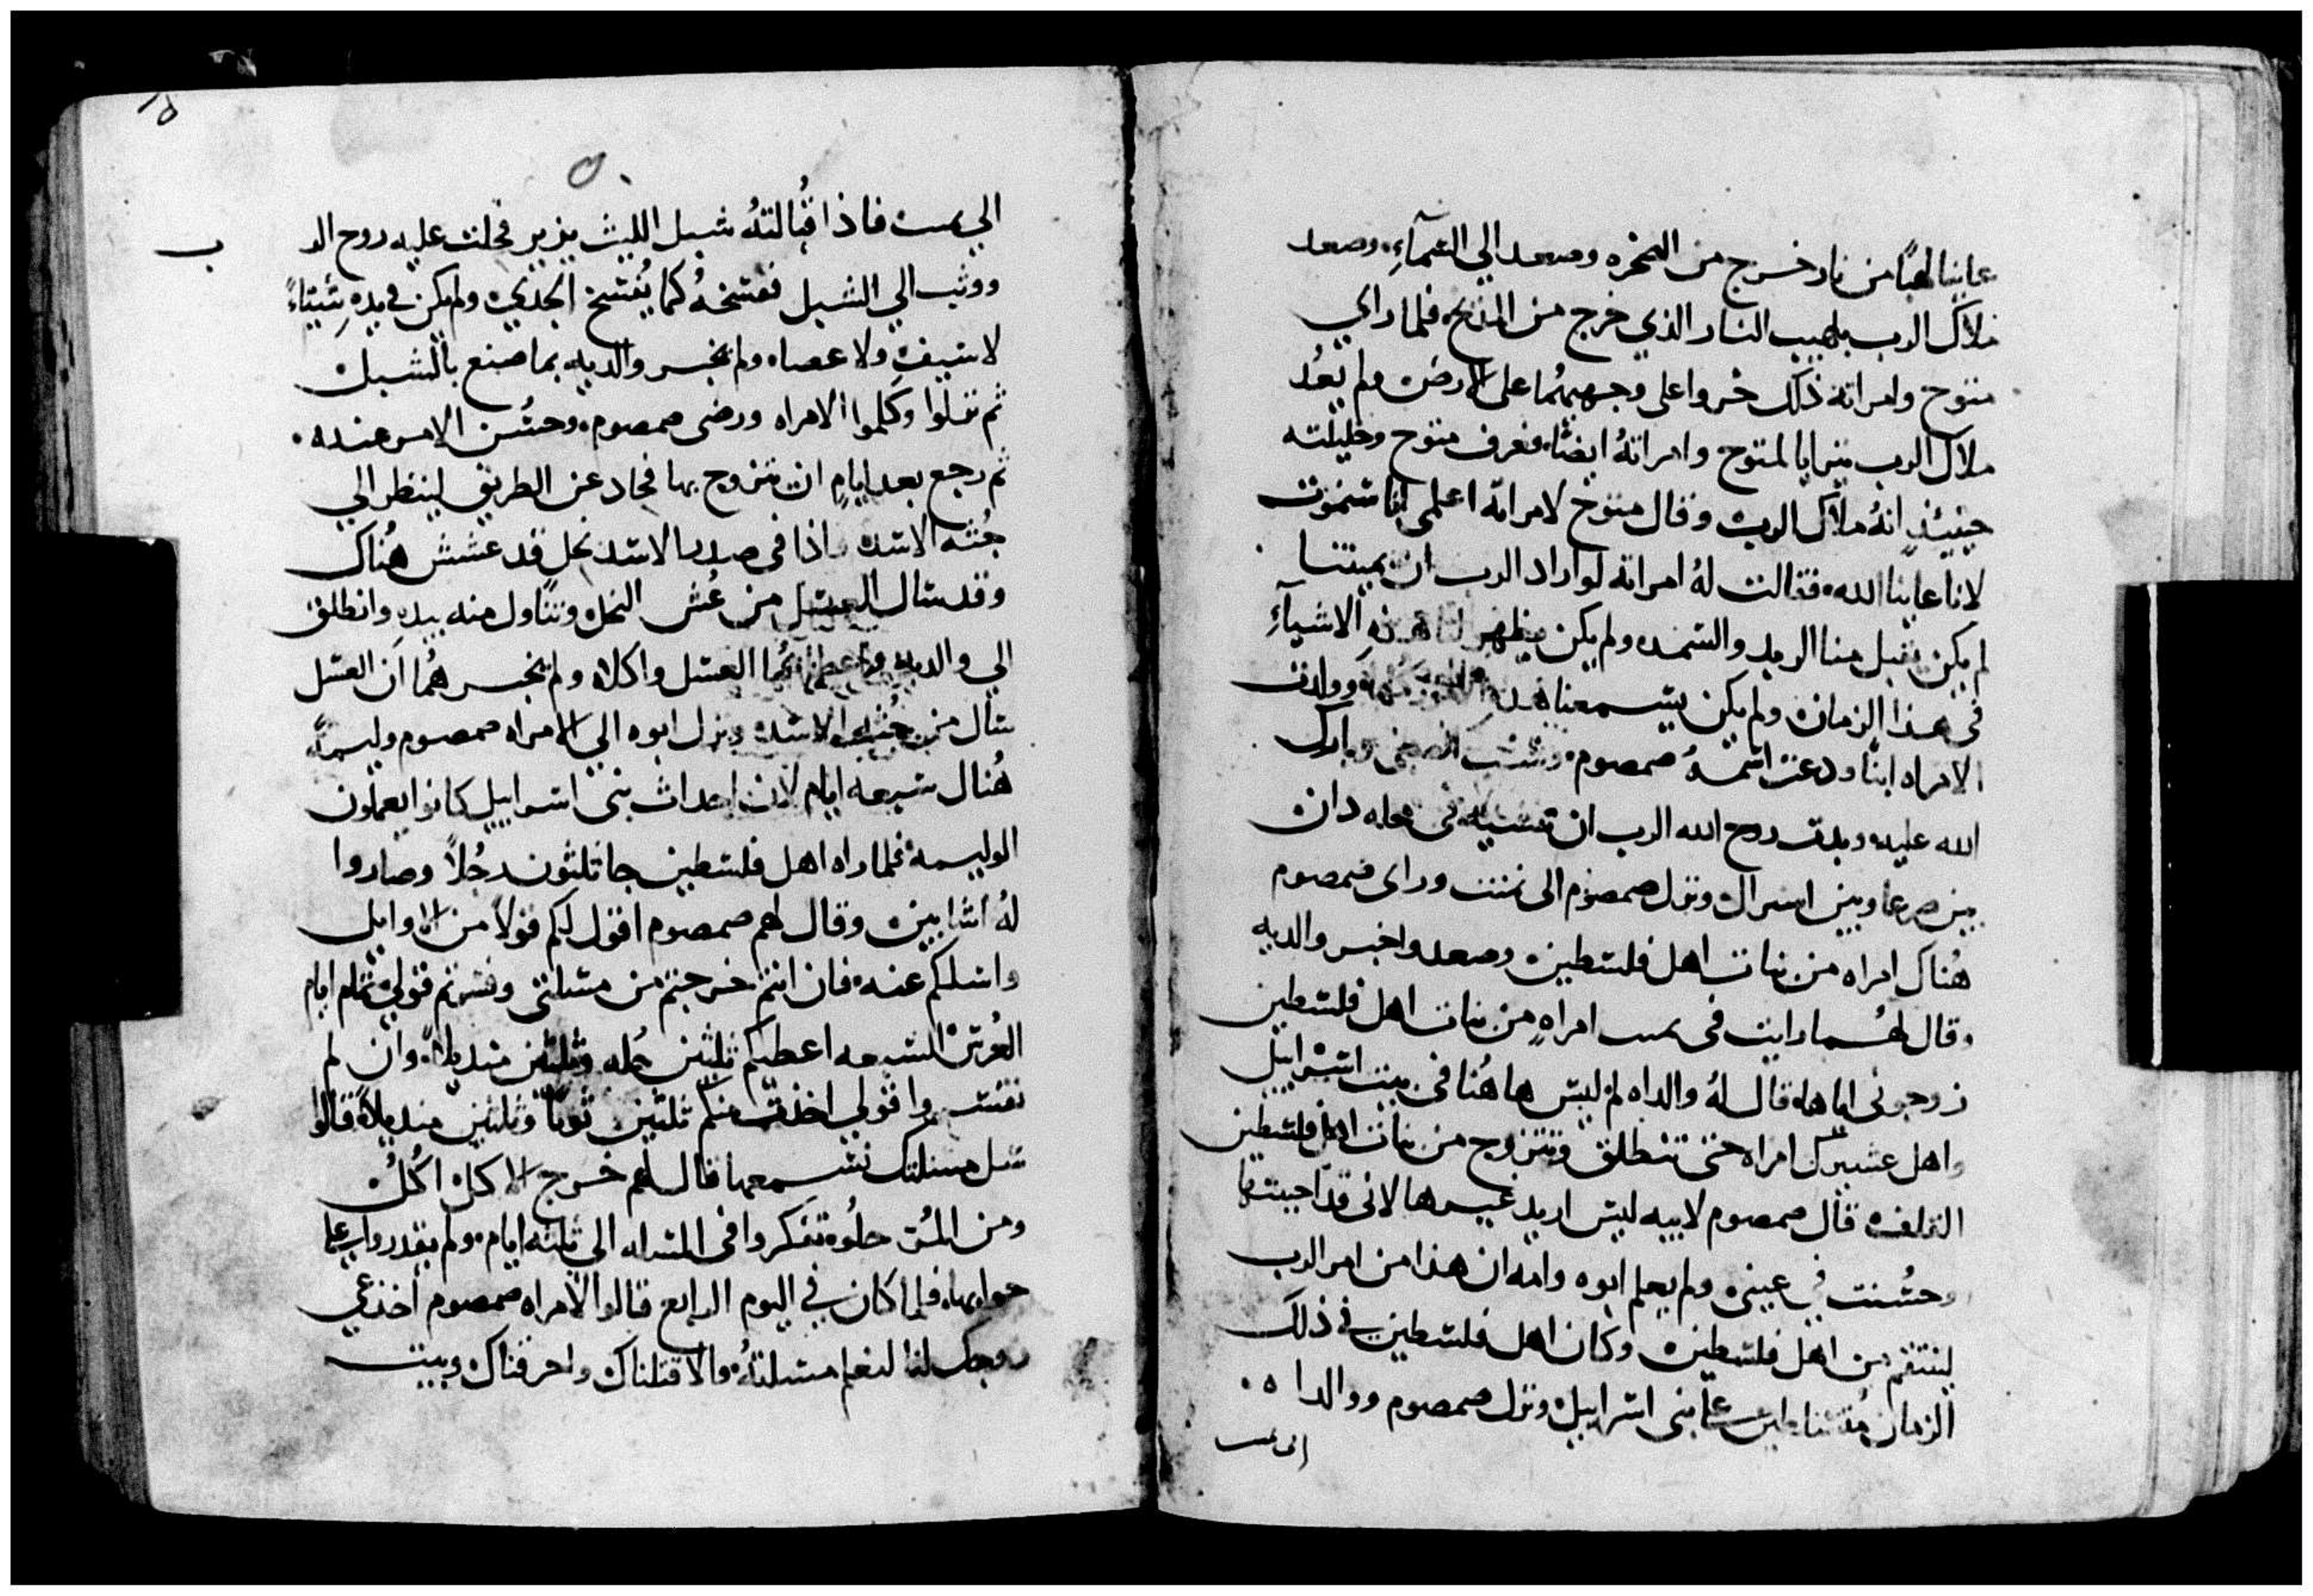 عاينا لهبًا من نار خرج من الصخره وصعد الي السمآءِ وصعد
ملاك الرب بلهيب النار الذي خرج من المذبح فلما راي
منوح وامراته ذلك خروا على وجهيهُما على الارض ولم يَعُد
ملاك الرب يترايا لمنوح وامراتهُ ايضًا فعرف منوح وخليلته
حينيذٍ انهُ ملاك الرب وقال منوح لامراته اعلمي انا سنموت
لانا عاينا الله فقالت لهُ امراته لو اراد الرب ان يميتنا
لم يكن يقبل منا الوبد والسمد ولم يكن يظهر لنا هذهِ الاشيآءِ
في هذا الزمان ولم يكن يسمعنا هذه وولدت
الامراه ابنًا ودعت اسمهُ صمصوم وشب الصبي وبارك
الله عليه وبدت روح الله الرب ان تمشيه في محله دان
بين صرعا وبين اسراال ونزل صمصوم الى تمنت وراى صمصوم
هُناك امراه من بنات اهل فلسطين وصعد واخبر والديه
وقال لهُما رايت في تمنت امراهٍ من بنات اهل فلسطين
زوجوني اياها قال لهُ والداه لم ليس هاهُنا في بيت اسراييل
واهل عشيرتك امراه حتى تنطلق وتتزوج من بنات اهل فلسطين
الغلف قال صمصوم لابيه ليس اريد غيرها لاني قد احببتها
وحسُنت في عيني ولم يعلم ابوه وامه ان هذا من امر الرب
لينتقم من اهل فلسطين وكان اهل فلسطين في ذلك
الزمان مُتسلطين على بني اسراييل ونزل صمصوم ووالداه
الى تمنت
الي تمنت فاذا قُبالتهُ شبل الليث يزير فحلت عليه روح الر
ب
ووثب الي الشبل ففسخهُ كما يُفسخ الجدي ولم يكن في يدهِ شيئاً
لا سيف ولا عصاه ولم يخبر والديه بما صنع بالشبل
ثم نزلوا وكلموا الامراه ورضى صمصوم وحسُن الامر عنده
ثم رجع بعد ايامٍ ان يتزوج بها فحاد عن الطريق لينظر الي
جُثه الاسد واذا في صدر الاسد نحل قد عشش هُناك
وقد سال العسل من عُش النحل وتناول منه بيدهِ وانطلق
الي والديه واعطاهُما العسل واكلاه ولم يخبرهُما ان العسل
سال من جُثه الاسد ونزل ابوه الي الامراه صمصوم وليمهً
هُناك سبعه ايام لان احداث بني اسراييل كانوا يعملون
الوليمه فلما راه اهل فلسطين جا ثلثون رجُلاً وصاروا
لهُ اشابين وقال لهم صمصوم اقول لكم قولاً من الاوايل
واسلكم عنه فان انتم خرجتم من مسلتي وفسرتم قولي تمام ايام
العُرس السبعه اعطيكم ثلثين حُله وثلثين منديلاً وان لم
تفسروا قولي اخذت منكم ثلثين ثوباً وثلثين منديلاً قالوا
سل مسلتك نسمعها قال لهم خرج الاكل اكُل
ومن المُر حلُوه تفكروا في المسله الى ثلثه ايام ولم يقدروا على
جوابها فلما كان في اليوم الرابع قالوا لامراه صمصوم اخذعي
زوجك لنا لنعلم مسلتهُ والا قتلناك واحرقناك وبيت